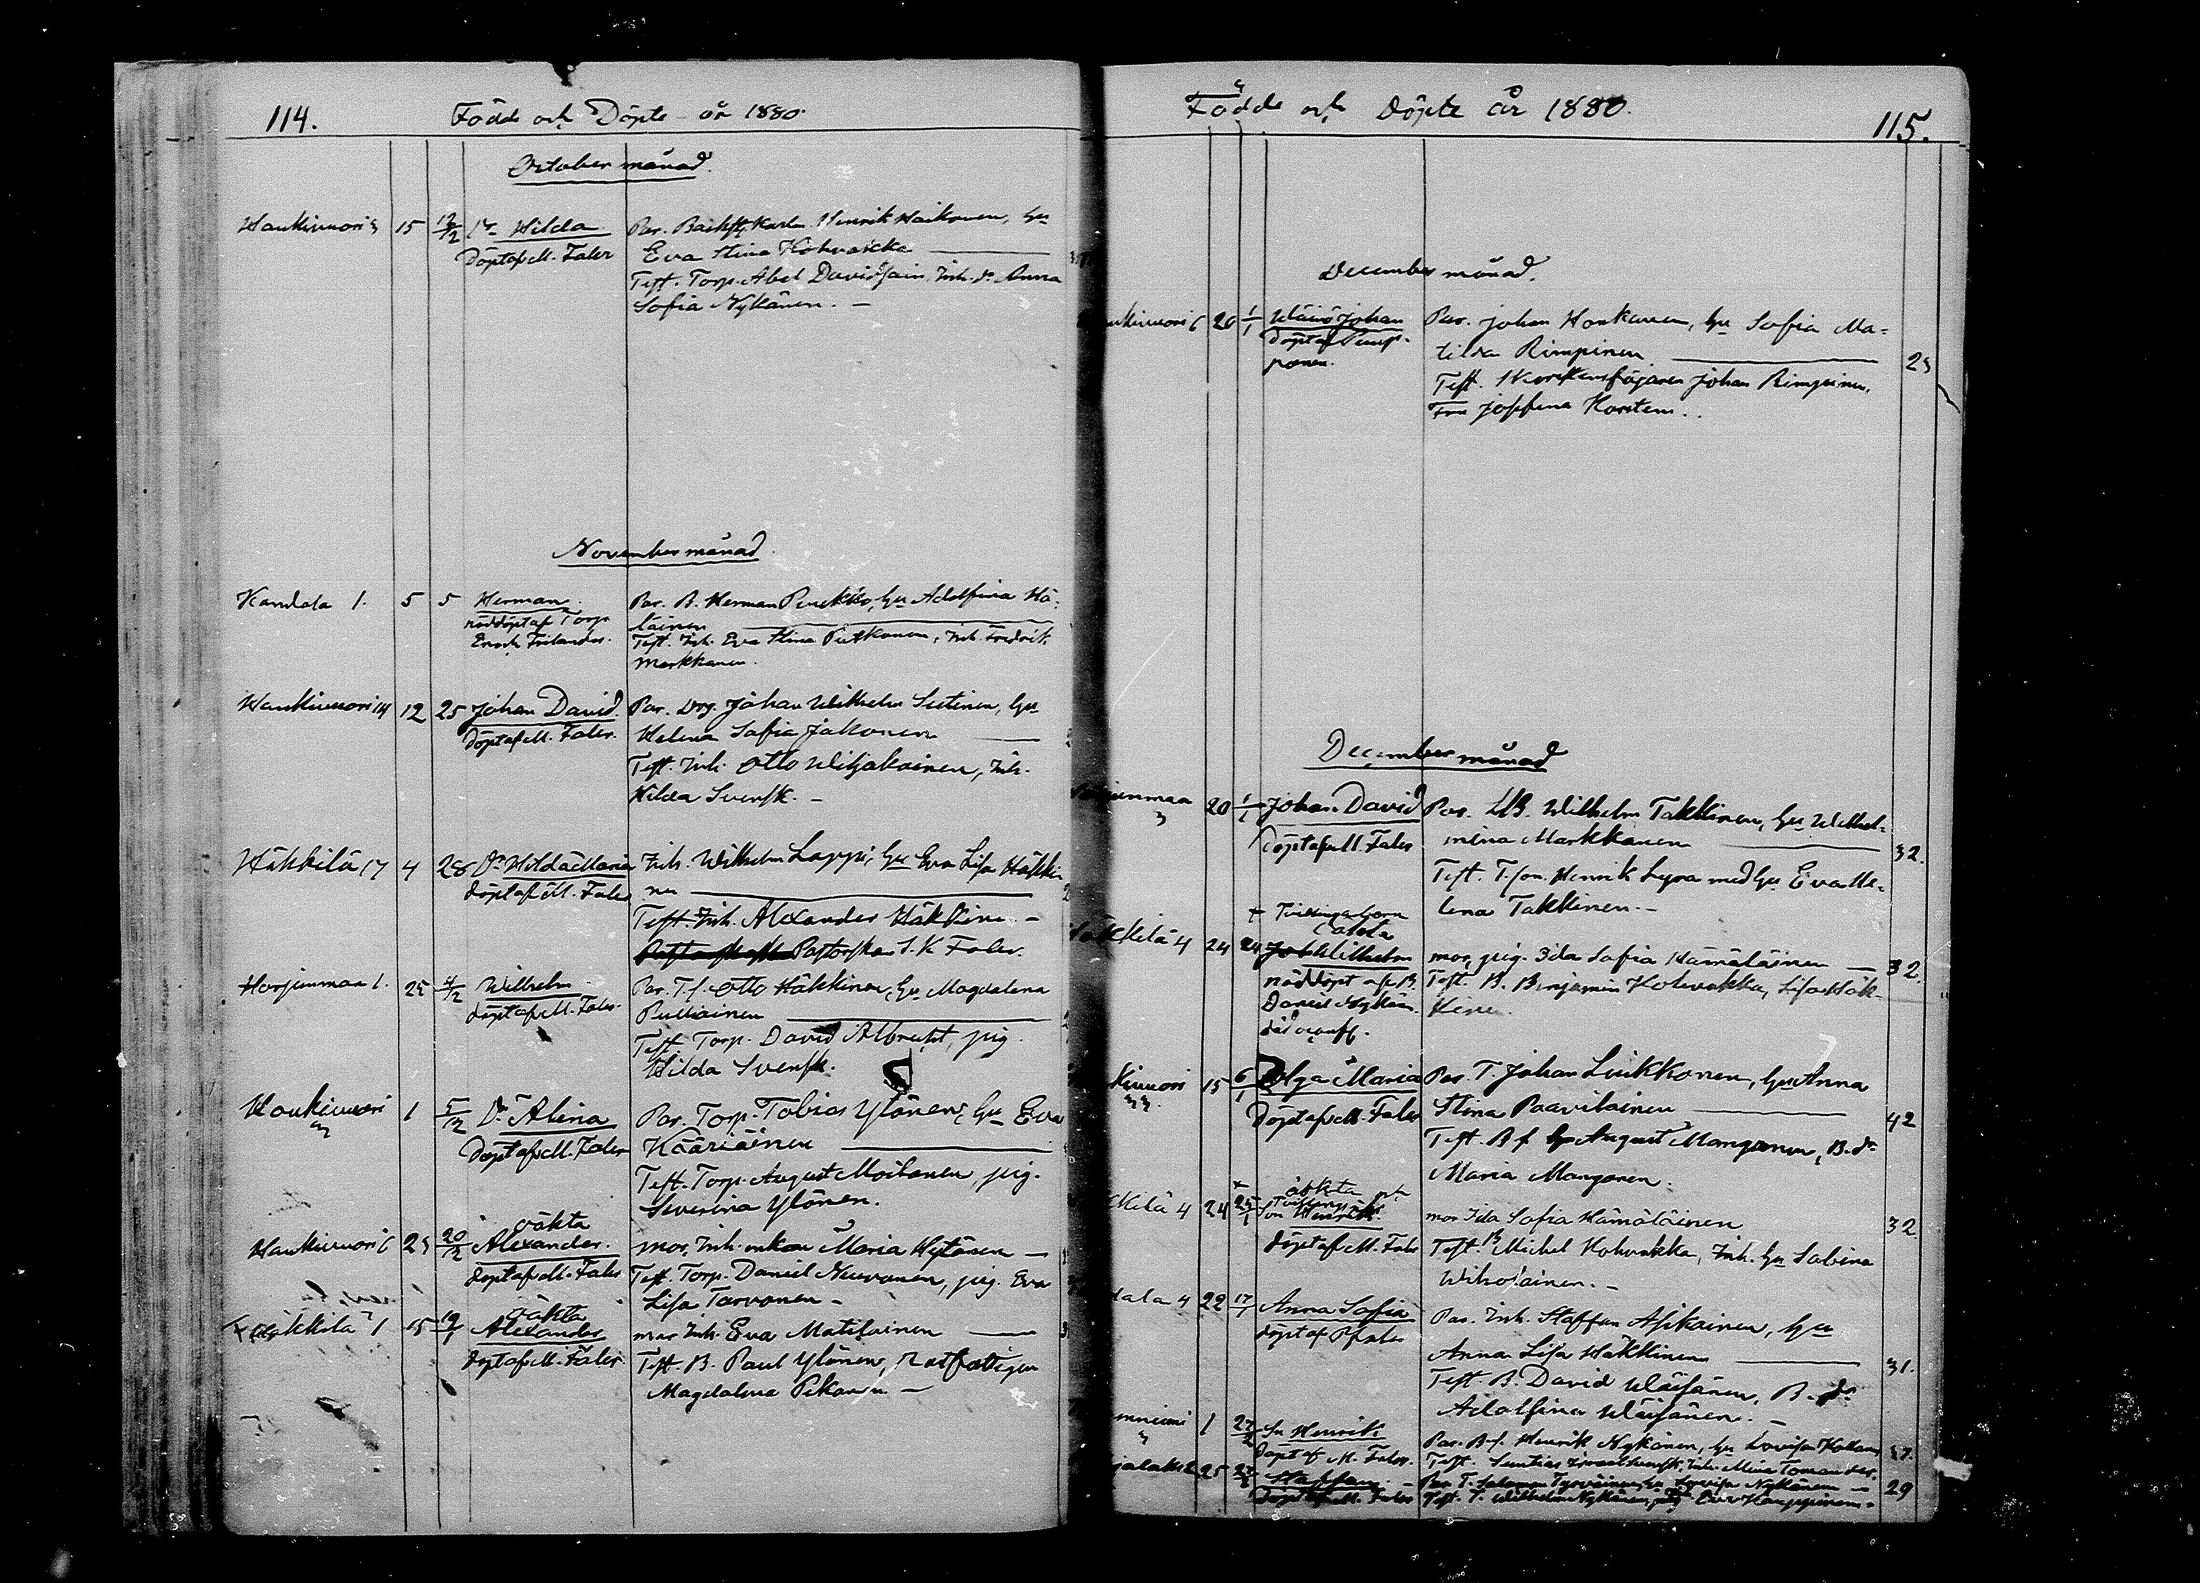 114.
Födde och Döpte år 1880.
October månad.
Haukivuori 3 15 12/12 Dr Hilda
Döpt af M. Faler
Par. Karl Henrik Haikonen, hu
Eva Stina Kohvakka
Test. Torp. Abel Davidsain, Inh. dr Anna
Sofia Nykänen. —
November månad
Kandala 1. 5 5 Herman
nöddöpt af Torp
Enock Frilander.
Par. B. Herman Pirikko, hu Adolfina Hä-
täinen
Test. Inh. Eva Stina Putkonen, Inh. Fredrik
Markkanen.
Haukivuori 14 12 25 Johan David
döpt af M. Faler.
Par. Drg. Johan Wilhelm Sutinen, hu
Helena Sofia Jakonen
Test. Inh. Otto Wiljakainen, Inh.
Hilda Svensk. —
Häkkilä 17 4 28 Dr Hilda Maria
döpt af M. Faler
Inh. Wilhelm Lappi, hu Eva Lisa Häkki-
nen
Test. Inh. Alexander Häkkinen —
Pastorskan S. K Faler.
Harjunmaa 1. 25 4/12 Wilhelm
döpt af M. Faler
Par. T. f. Otto Häkkinen, hu Magdalena
Pulliainen
Test Torp. David Albrecht, pig.
Hilda Svensk.
Haukivuori
3 1 5/12 Dr Alina
Döpt af M. Faler
Par. Torp. Tobias Ylönen, hu Eva
Kääriäinen
Test. Torp. August Moilanen, pig.
Severina Ylönen.
Haukivuori 6 23 20/12 oäkta
Alexander.
döpt af M. Faler
mor, Inh. enkan Maria Hytönen —
Test. Torp. Daniel Nuvonen, pig. Eva
Lisa Tarvonen —
Häkkilä 1 15 19/1 oäkta
Alexander
döpt af M. Faler
mor Inh. Eva Matilainen
Test. B. Paul Ylönen, Rotfattigen
Magdalena Pekonen —
Födde och Döpte år 1880.
115.
December månad.
kivuori 6 20 1/1 Wäinö Johan
döpt af Pump-
ponen.
Par. Johan Honkanen, hu Sofia Ma-
tilda Rimpinen 23
Test. Johan Rimpinen.
Fru Josefina Horsten.
December månad
junmaa
3 20 1/1 Johan David
döpt af M. Faler
Par. LB. Wilhelm Takkinen, hu Wilhel-
mina Markkanen 32.
Test. T. son. Henrik Lyra med hu Eva He-
lena Takkinen. —
+ Tvillingabarn
oäkta
kkilä 4 24 24 Joh Wilhelm
nöddöpt af B.
Daniel Nykän.
död
mor, pig. Ida Sofia Hämäläinen — 32.
Test. B. Benjamin Kohvakka, Lisa Häk-
kinen
kivuori
33. 15 6/1 Olga Maria
Döpt af M. Faler
Par. T. Johan Liukkonen, hu Anna
Stina Paavilainen 42
Test. B. f. August Manganen, B. dr
Maria Manganen.
kkilä 4 24 25/1 oäkta och
Tvilling
son Henrik.
döpt af M. Faler
mor Ida Sofia Hämäläinen 32
Test. B Michel Kohvakka, Inh. hu Sabina
Wiholainen. —
dala 4 22 17/1 Anna Sofia
döpt af P Faler
Par. Inh. Staffan Asikainen, hu
Anna Lisa Häkkinen 31.
Test. B. David Wäisänen, B. dr
Adolfina Wäisänen. —
niemi
3 1 27/2 Sn Henrik
döpt af M. Faler.
Par. B. f. Henrik Nykänen, hu Lovisa 37.
Test. Israel Svensk, Inh. Mina Tomander.
25 27/2 Staffan. —
döpt af M. Faler
Par. T. Salomon Tyrväinen, hu Lovisa Nykänen — 29
Test. T. Wilhelm Nykänen, pig Eva Kauppinen. —